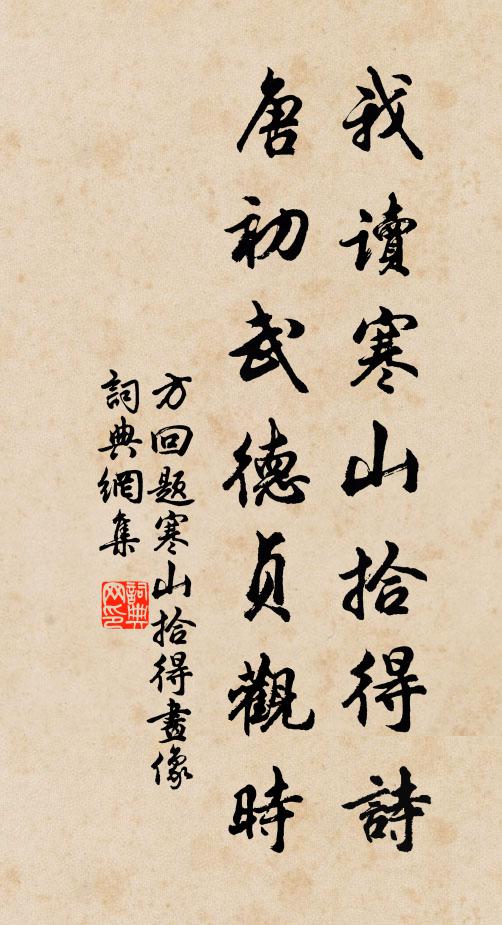 我讀寒山拾得詩
唐初武德貞觀時
方回題寒山拾得畫像
詞典網集
詞典网印